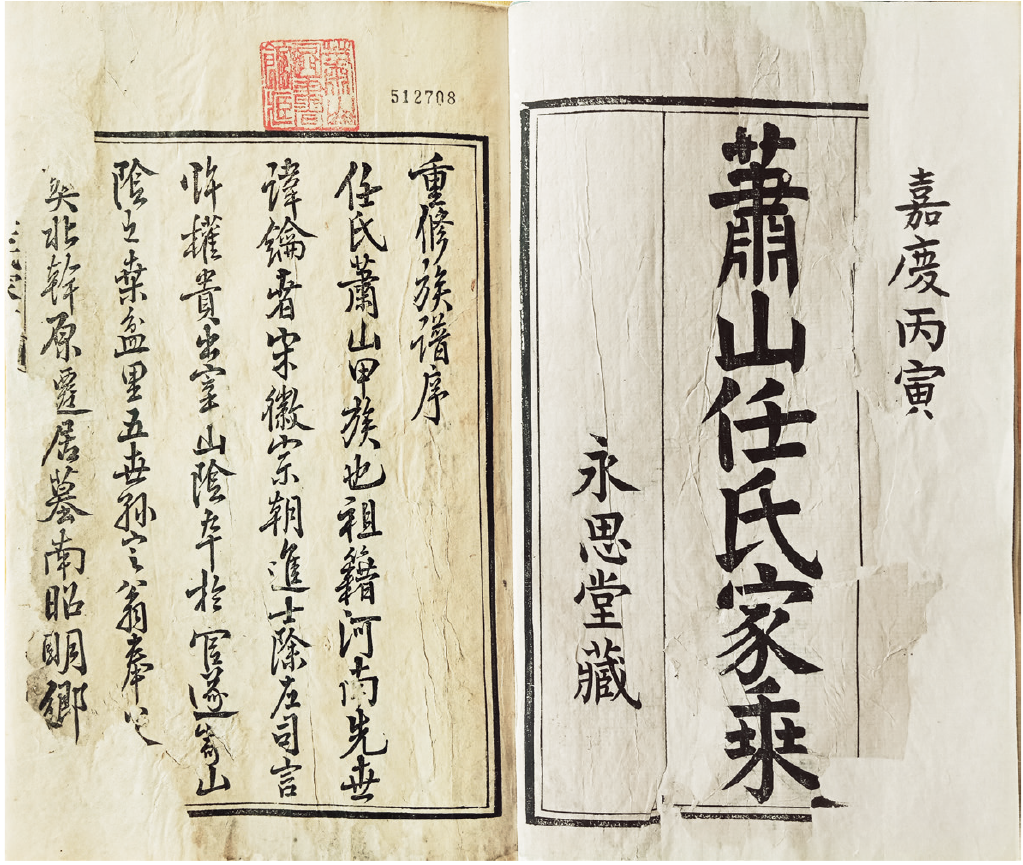 嘉慶丙寅
蕭山任氏家乘
永思堂藏
512708
重修族譜序
任氏蕭山甲族也祖籍河南先世
諱鑰者宋徽宗朝進士除左司言
忤權貴出宰山陰卒於官遂葬山
陰之桑盆里五世孫翁奉
北幹原遷居墓南昭明鄉